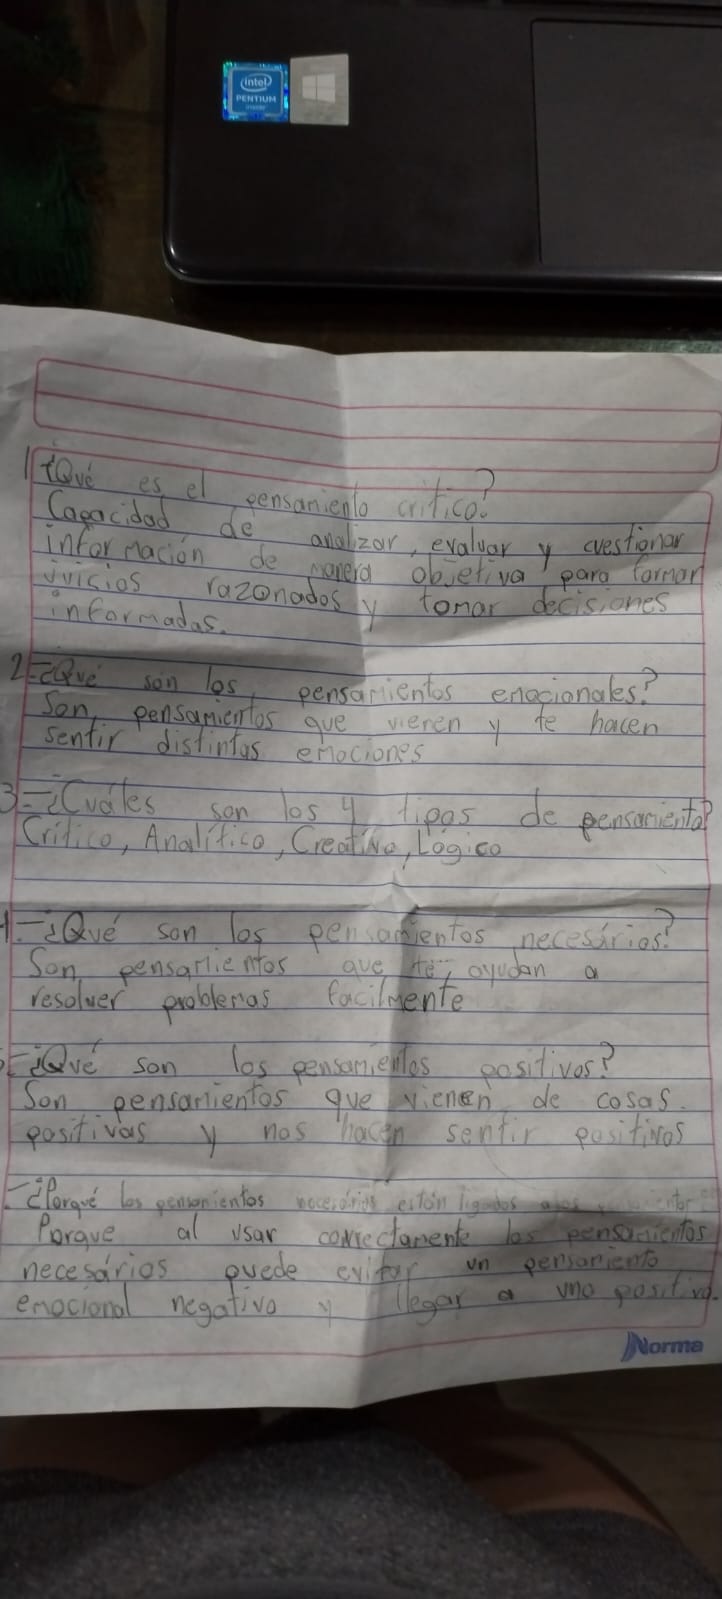 intel
PENTIUM
inside
1 ¿Qué es el pensamiento critico?
Capacidad de analizar, evaluar y cuestionar
información de manera objetiva para formar
juicios razonados y tomar decisiones
informadas.
2-¿Qué son los pensamientos emocionales?
Son pensamientos que vienen y te hacen
sentir distintas emociones
3-¿Cuáles son los 4 tipos de pensamiento?
Crítico, Analítico, Creativo, Lógico
4-¿Qué son los pensamientos necesários?
Son pensamientos que te ayudan a
resolver problemas facilmente
-¿Qué son los pensamientos positivos?
Son pensamientos que vienen de cosas
positivas y nos hacen sentir positivos
-¿Porqué los pensamientos necesários están ligados
Porque al usar correctamente los pensamientos
necesários puede evitar un pensamiento
emocional negativo y llegar a uno positivo.
Norma